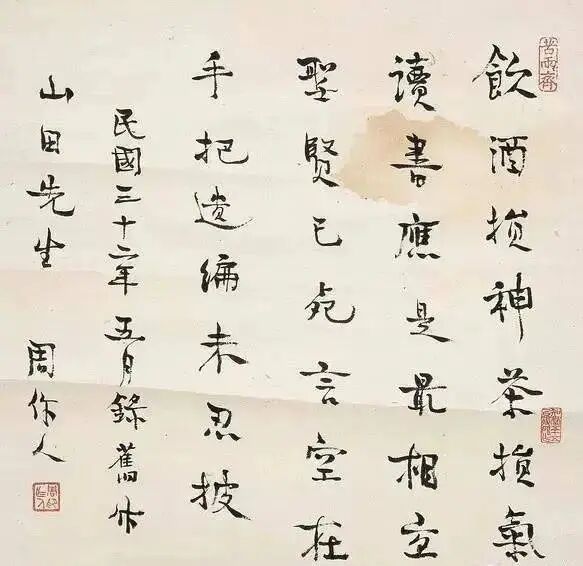 苦雨齋
飲酒損神茶損氣
讀書應是最相宜
聖賢已死言空在
手把遺編未忍披
民國三十二年五月錄舊作
山田先生
周作人